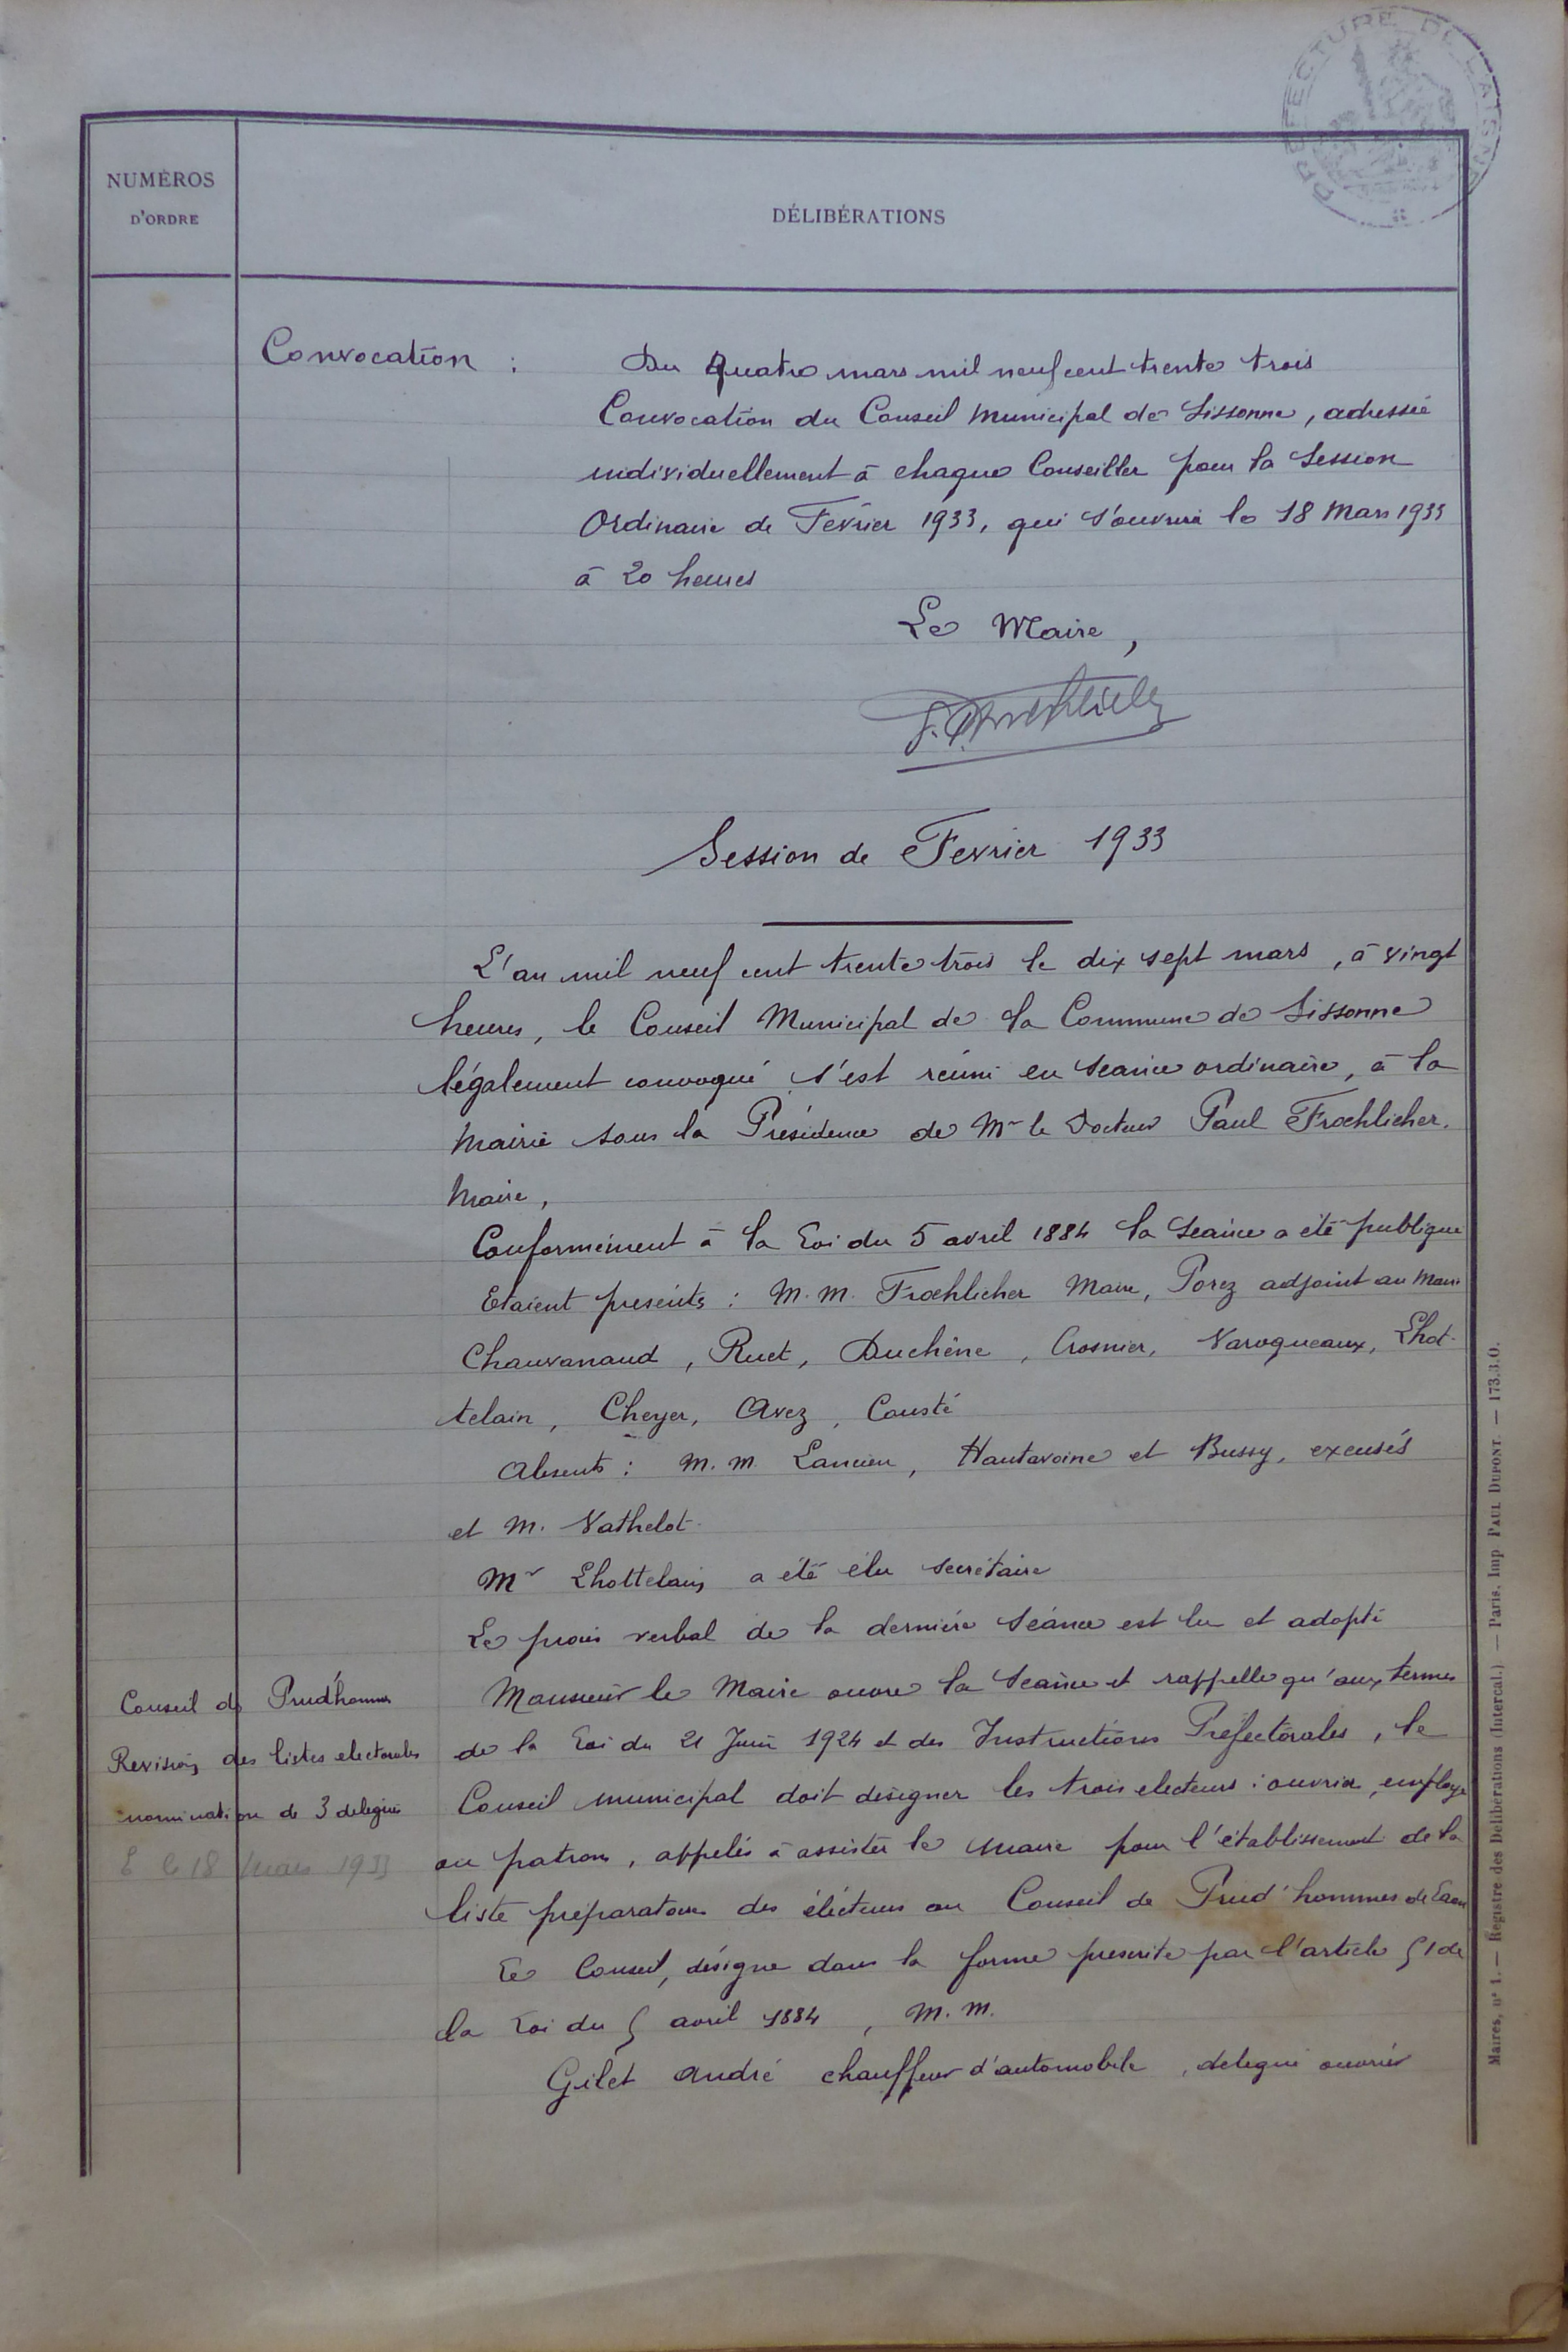 PREFECTURE DE L'AISNE
NUMÉROS
D'ORDRE
DÉLIBÉRATIONS
Convocation :
Du Quatre mars mil neuf cent trente trois
Convocation du Conseil Municipal de Sissonne, adressée
individuellement à chaque Conseiller pour la Session
Ordinaire de Février 1933, qui s'ouvrira le 18 Mars 1933
à 20 heures
Le Maire,
Session de Fevrier 1933
L'an mil neuf cent trente trois le dix sept mars, à vingt
heures, le Conseil Municipal de la Commune de Sissonne
légalement convoqué s'est réuni en seance ordinaire, à la
Mairie sous la Présidence de Mr le Docteur Paul Froehlicher.
Maire,
Conformément à la Loi du 5 avril 1884 la Seance a été publique
Etaient présents : M.M. Froehlicher Maire, Porez adjoint au Maire
Chauvanaud, Ruet, Duchêne, Crosnier, Varoqueaux, Lhot-
telain, Cheyer, Avez, Cousté
Absents : M.M. Lancien, Hautavoine et Bussy, excusés
et M. Vathelot.
Mr Lhottelain a été élu secrétaire
Le procès verbal de la dernière séance est lu et adopté
Conseil de Prud'hommes
Revision des listes electorales
nomination de 3 delegués
E le 18 Mars 1933
Monsieur le Maire ouvre la Seance et rappelle qu'aux termes
de la Loi du 21 Juin 1924 et des Instructions Préfectorales, le
Conseil municipal doit désigner les trois electeurs : ouvrier, employé
ou patron, appelés à assister le Maire pour l'établissement de la
liste préparatoire des électeurs au Conseil de Prud'hommes de Laon
Le Conseil, désigne dans la forme prescrite par l'article 51 de
la Loi du 5 avril 1884, M.M.
Gilet André chauffeur d'automobile, delegué ouvrier
Maires, nº 1. — Registre des Délibérations (Intercal.) — Paris, Imp PAUL DUPONT. — 173.3.O.